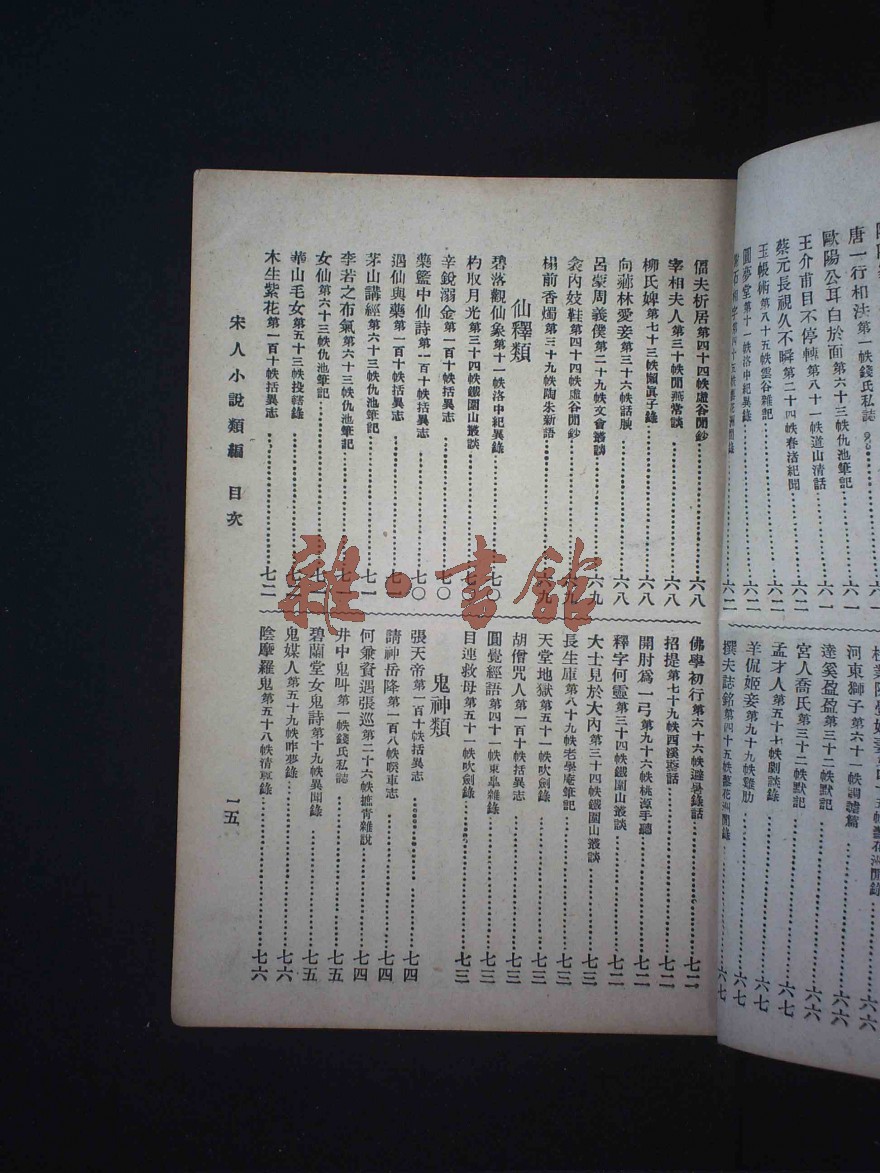 唐一行相法第一帙錢氏私誌
歐陽公耳白於面第六十三帙仇池筆記 六一
王介甫目不停轉第八十一帙道山清話 六一
蔡元長視久不瞬第二十四帙春渚紀聞 六二
玉帳術第八十五帙雲谷雜記 六二
圓夢堂第十一帙洛中紀異錄 六二
河東獅子第六十一帙調謔篇 六六
達奚盈盈第三十二帙默記 六六
宮人喬氏第三十二帙默記 六六
孟才人第五十七帙劇談錄 六七
羊侃姬妾第九十九帙雞肋 六七
撰夫誌銘第四十五帙 六七
傭夫析居第四十四帙虛谷閒鈔 六八
宰相夫人第三十帙閒燕常談 六八
柳氏婢第七十三帙嬾真子錄 六八
向薌林愛妾第三十六帙話腴 六八
呂蒙周義僕第二十九帙文會叢談 六九
衾內妓鞋第四十四帙虛谷閒鈔 六九
榻前香燭第三十九帙陶朱新語 六九
仙釋類
碧落觀仙象第十一帙洛中紀異錄 七〇
杓取月光第三十四帙鐵圍山叢談 七〇
辛銳溺金第一百十帙括異志 七〇
藥籃中仙詩第一百十帙括異志 七〇
遇仙與藥第一百十帙括異志 七一
茅山講經第六十三帙仇池筆記 七一
李若之布氣第六十三帙仇池筆記 七一
女仙第六十三帙仇池筆記 七一
華山毛女第五十三帙投轄錄 七二
木生紫花第一百十帙括異志 七二
佛學初行第六十六帙避暑錄話 七二
招提第七十九帙西溪叢話 七二
開肘爲一弓第九十六帙桃源手聽 七二
釋字何靈第三十四帙鐵圍山叢談 七二
大士見於大內第三十四帙鐵圍山叢談 七三
長生庫第八十九帙老學庵筆記 七三
天堂地獄第五十一帙吹劍錄 七三
胡僧咒人第一百十帙括異志 七三
圓覺經語第四十一帙東皐雜錄 七三
目連救母第五十一帙吹劍錄 七三
鬼神類
張天帝第一百十帙括異志 七四
請神岳降第一百八帙睽車志 七四
何兼資遇張巡第二十六帙摭青雜說 七四
井中鬼叫第一帙錢氏私誌 七五
碧蘭堂女鬼詩第十九帙異聞錄 七五
鬼媒人第五十九帙昨夢錄 七六
陰摩羅鬼第五十八帙清尊錄 七六
宋人小說類編 目次
一五
雜·書館